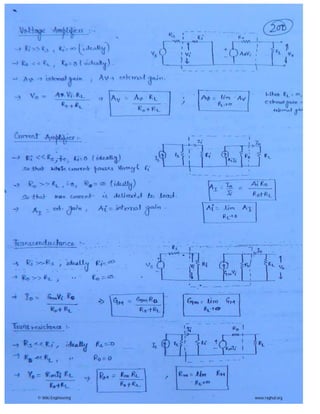 Voltage Amplifier :-
200
→ Ri >> Rs , Ri = ∞ (ideally)
→ Ro << RL , Ro = 0 (ideally)
→ internal gain , AV → external gain.
→ Vo = Vi RL / Ro + RL ⇒ AV = RL / Ro + RL
= lim AV
RL→∞
When RL = ∞,
external gain =
internal gain
Current Amplifier :-
→ Ri << Rs, Ri = 0 (ideally)
so that whole current passes through Ri
→ Ro >> RL , Ro = ∞ (ideally)
so that max current is delivered to load.
→ AI = ext. gain , Ai = internal gain.
AI = Io / = Ai Ro / Ro + RL
Ai = lim AI
RL→0
Transconductance :-
→ Ri >> Rs ; ideally Ri = ∞
→ Ro >> RL , " Ro = ∞.
→ Io = Gm Vi Ro / Ro + RL ⇒ GM = Gm Ro / Ro + RL
Gm = lim GM
RL→0
Transresistance :-
→ ideally
→ Ro << RL , " Ro = 0
→ Vo = Rm RL / Ro + RL ⇒ RM = Rm RL / Ro + RL
Rm = lim RM
RL→∞
© Wiki Engineering
www.raghul.org